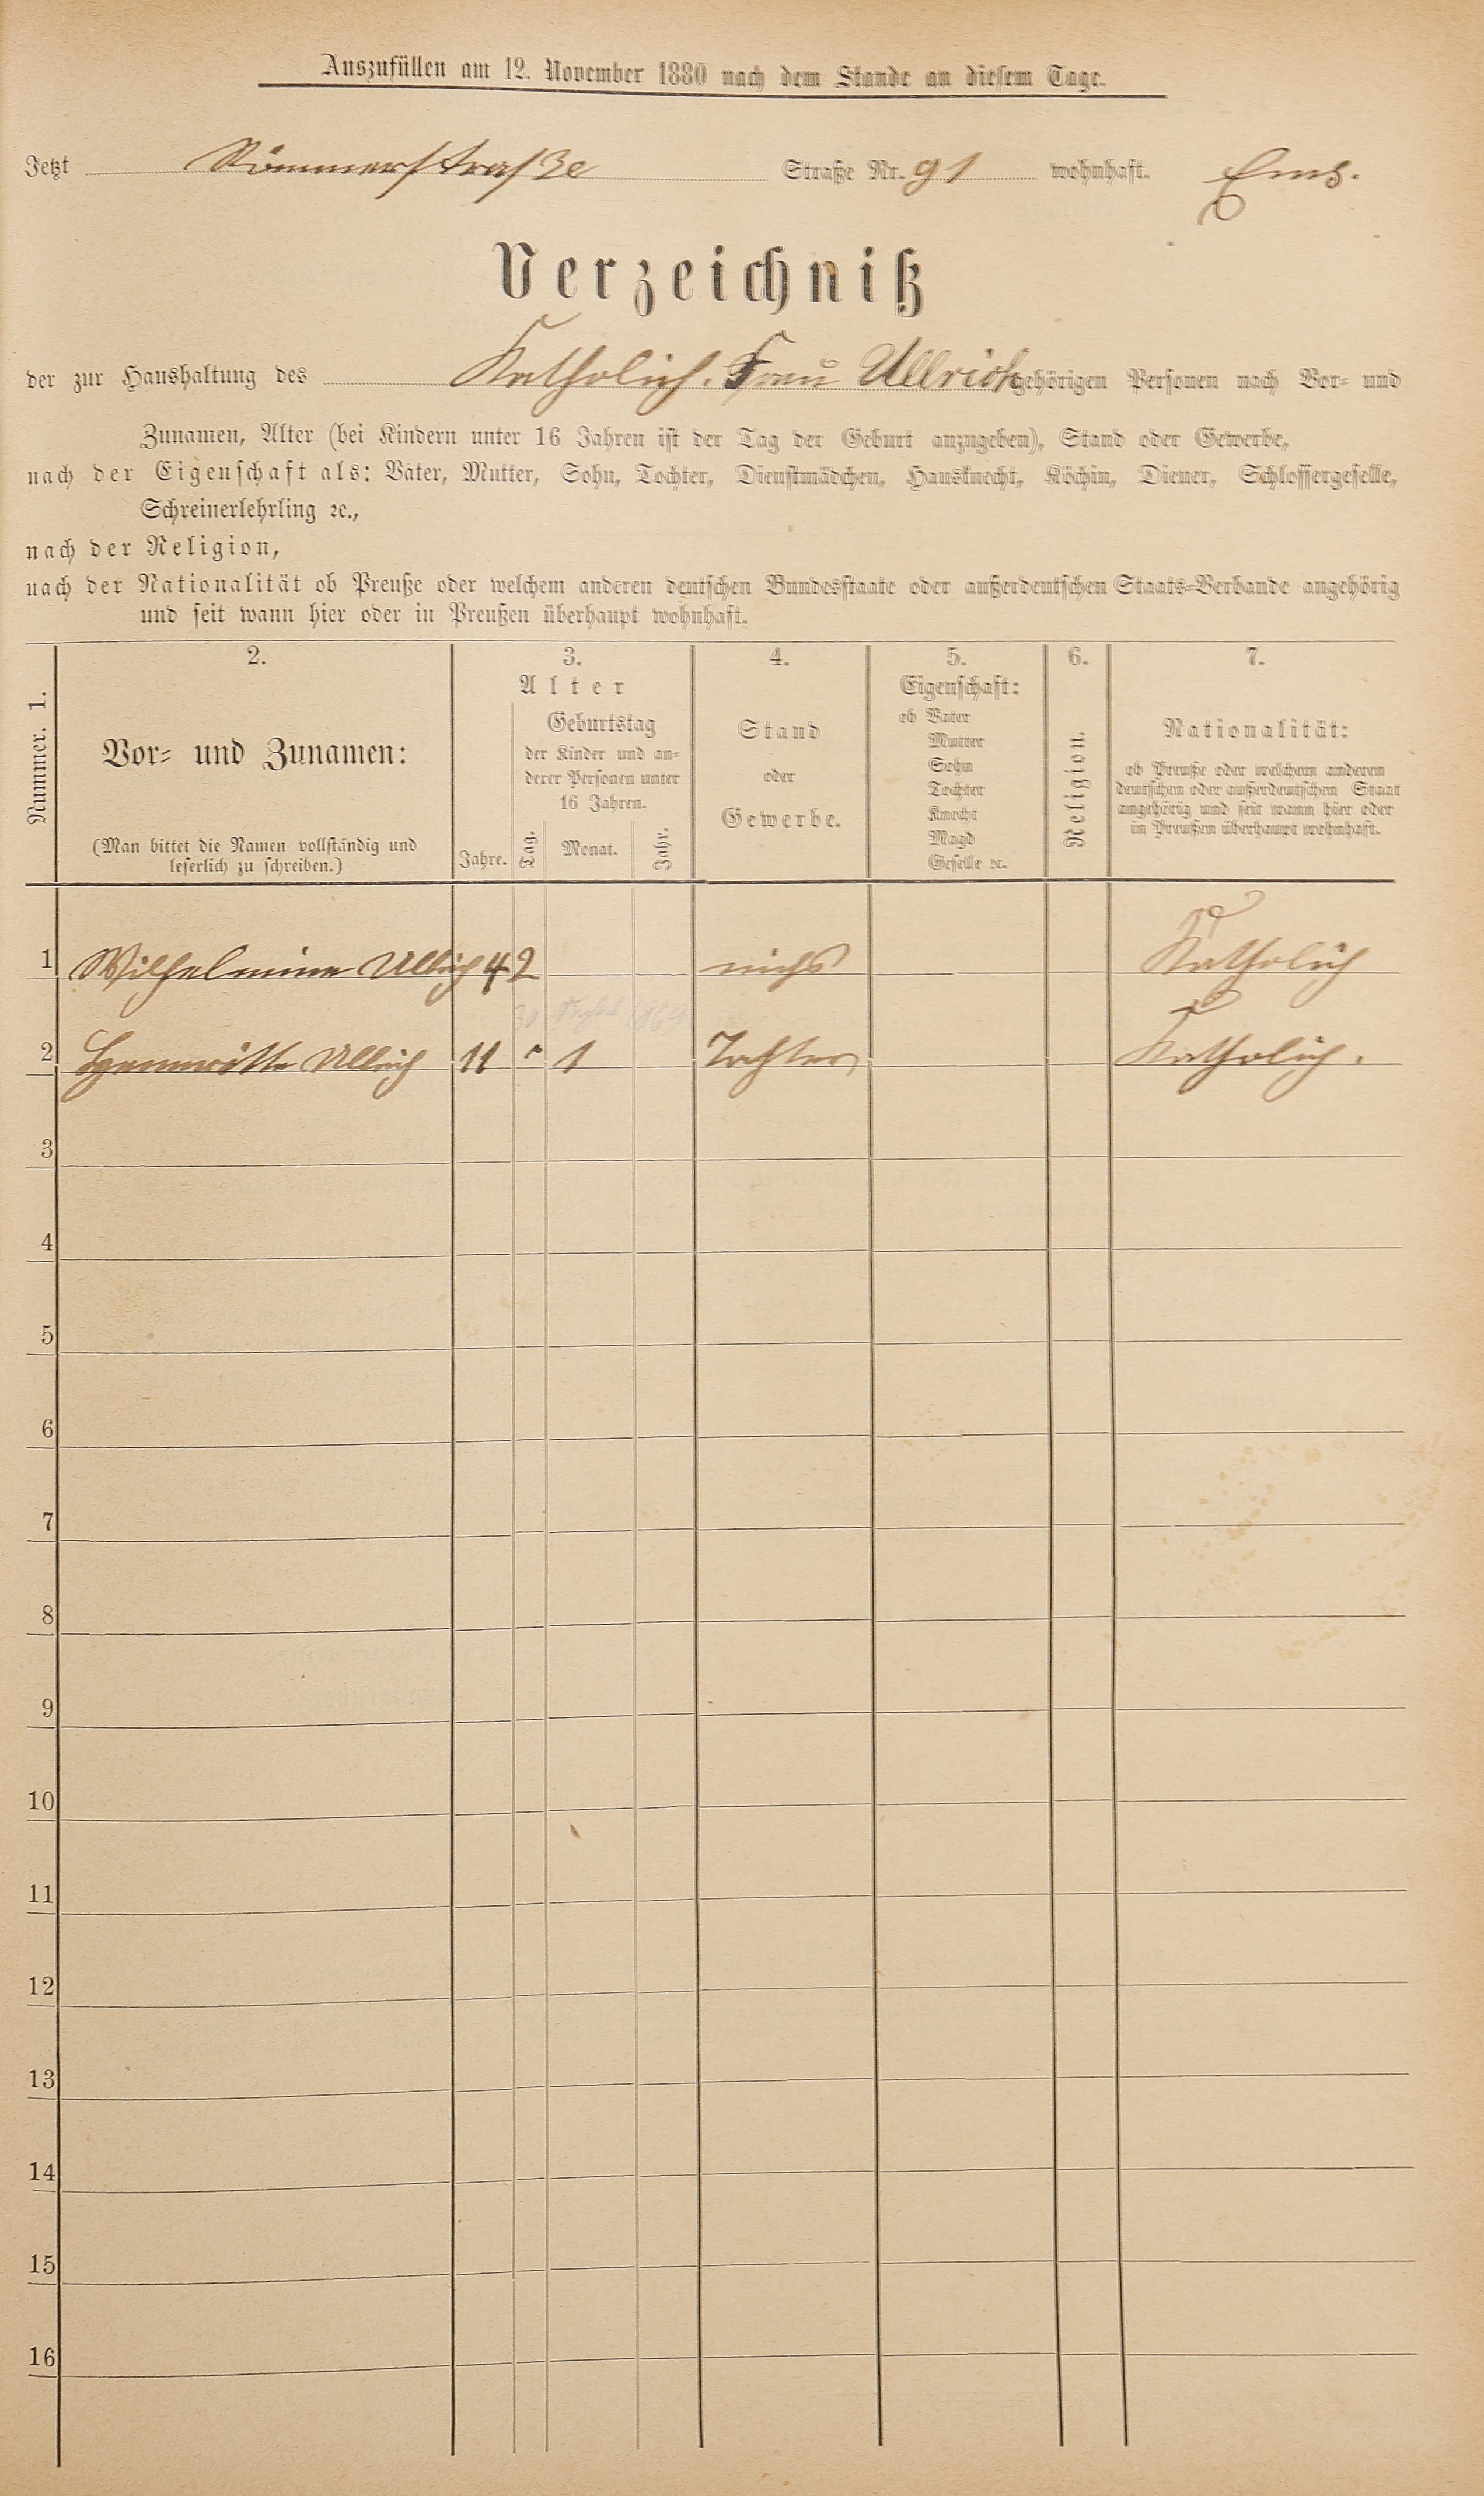 Auszufüllen am 12. November 1880 nach dem Stande an diesem Tage.
Jetzt Römmerstraße Straße Nr. 91 wohnhaft. Ems.
Verzeichniß
der zur Haushaltung des Katholich. Frau Ullrich gehörigen Personen nach Vor- und
Zunamen, Alter (bei Kindern unter 16 Jahren ist der Tag der Geburt anzugeben), Stand oder Gewerbe,
nach der Eigenschaft als: Vater, Mutter, Sohn, Tochter, Dienstmädchen, Hausknecht, Köchin, Diener, Schlossergeselle,
Schreinerlehrling ꝛc.,
nach der Religion,
nach der Nationalität ob Preuße oder welchem anderen deutschen Bundesstaate oder außerdeutschen Staats-Verbande angehörig
und seit wann hier oder in Preußen überhaupt wohnhaft.
Nummer. 1.
2.
Vor- und Zunamen:
(Man bittet die Namen vollständig und
leserlich zu schreiben.)
3.
Alter
Geburtstag
der Kinder und an-
derer Personen unter
16 Jahren.
Jahre. Tag. Monat. Jahr.
4.
Stand
oder
Gewerbe.
5.
Eigenschaft:
ob Vater
Mutter
Sohn
Tochter
Knecht
Magd
Geselle ꝛc.
6.
Religion.
7.
Nationalität:
ob Preuße oder welchem anderem
deutschen oder außerdeutschem Staat
angehörig und seit wann hier oder
in Preußen überhaupt wohnhaft.
1 Wilhelmine Ullrich 42 nichs Katholich
2 Hennriötte Ullrich 11 1 Tochter Katholich.
3
4
5
6
7
8
9
10
11
12
13
14
15
16